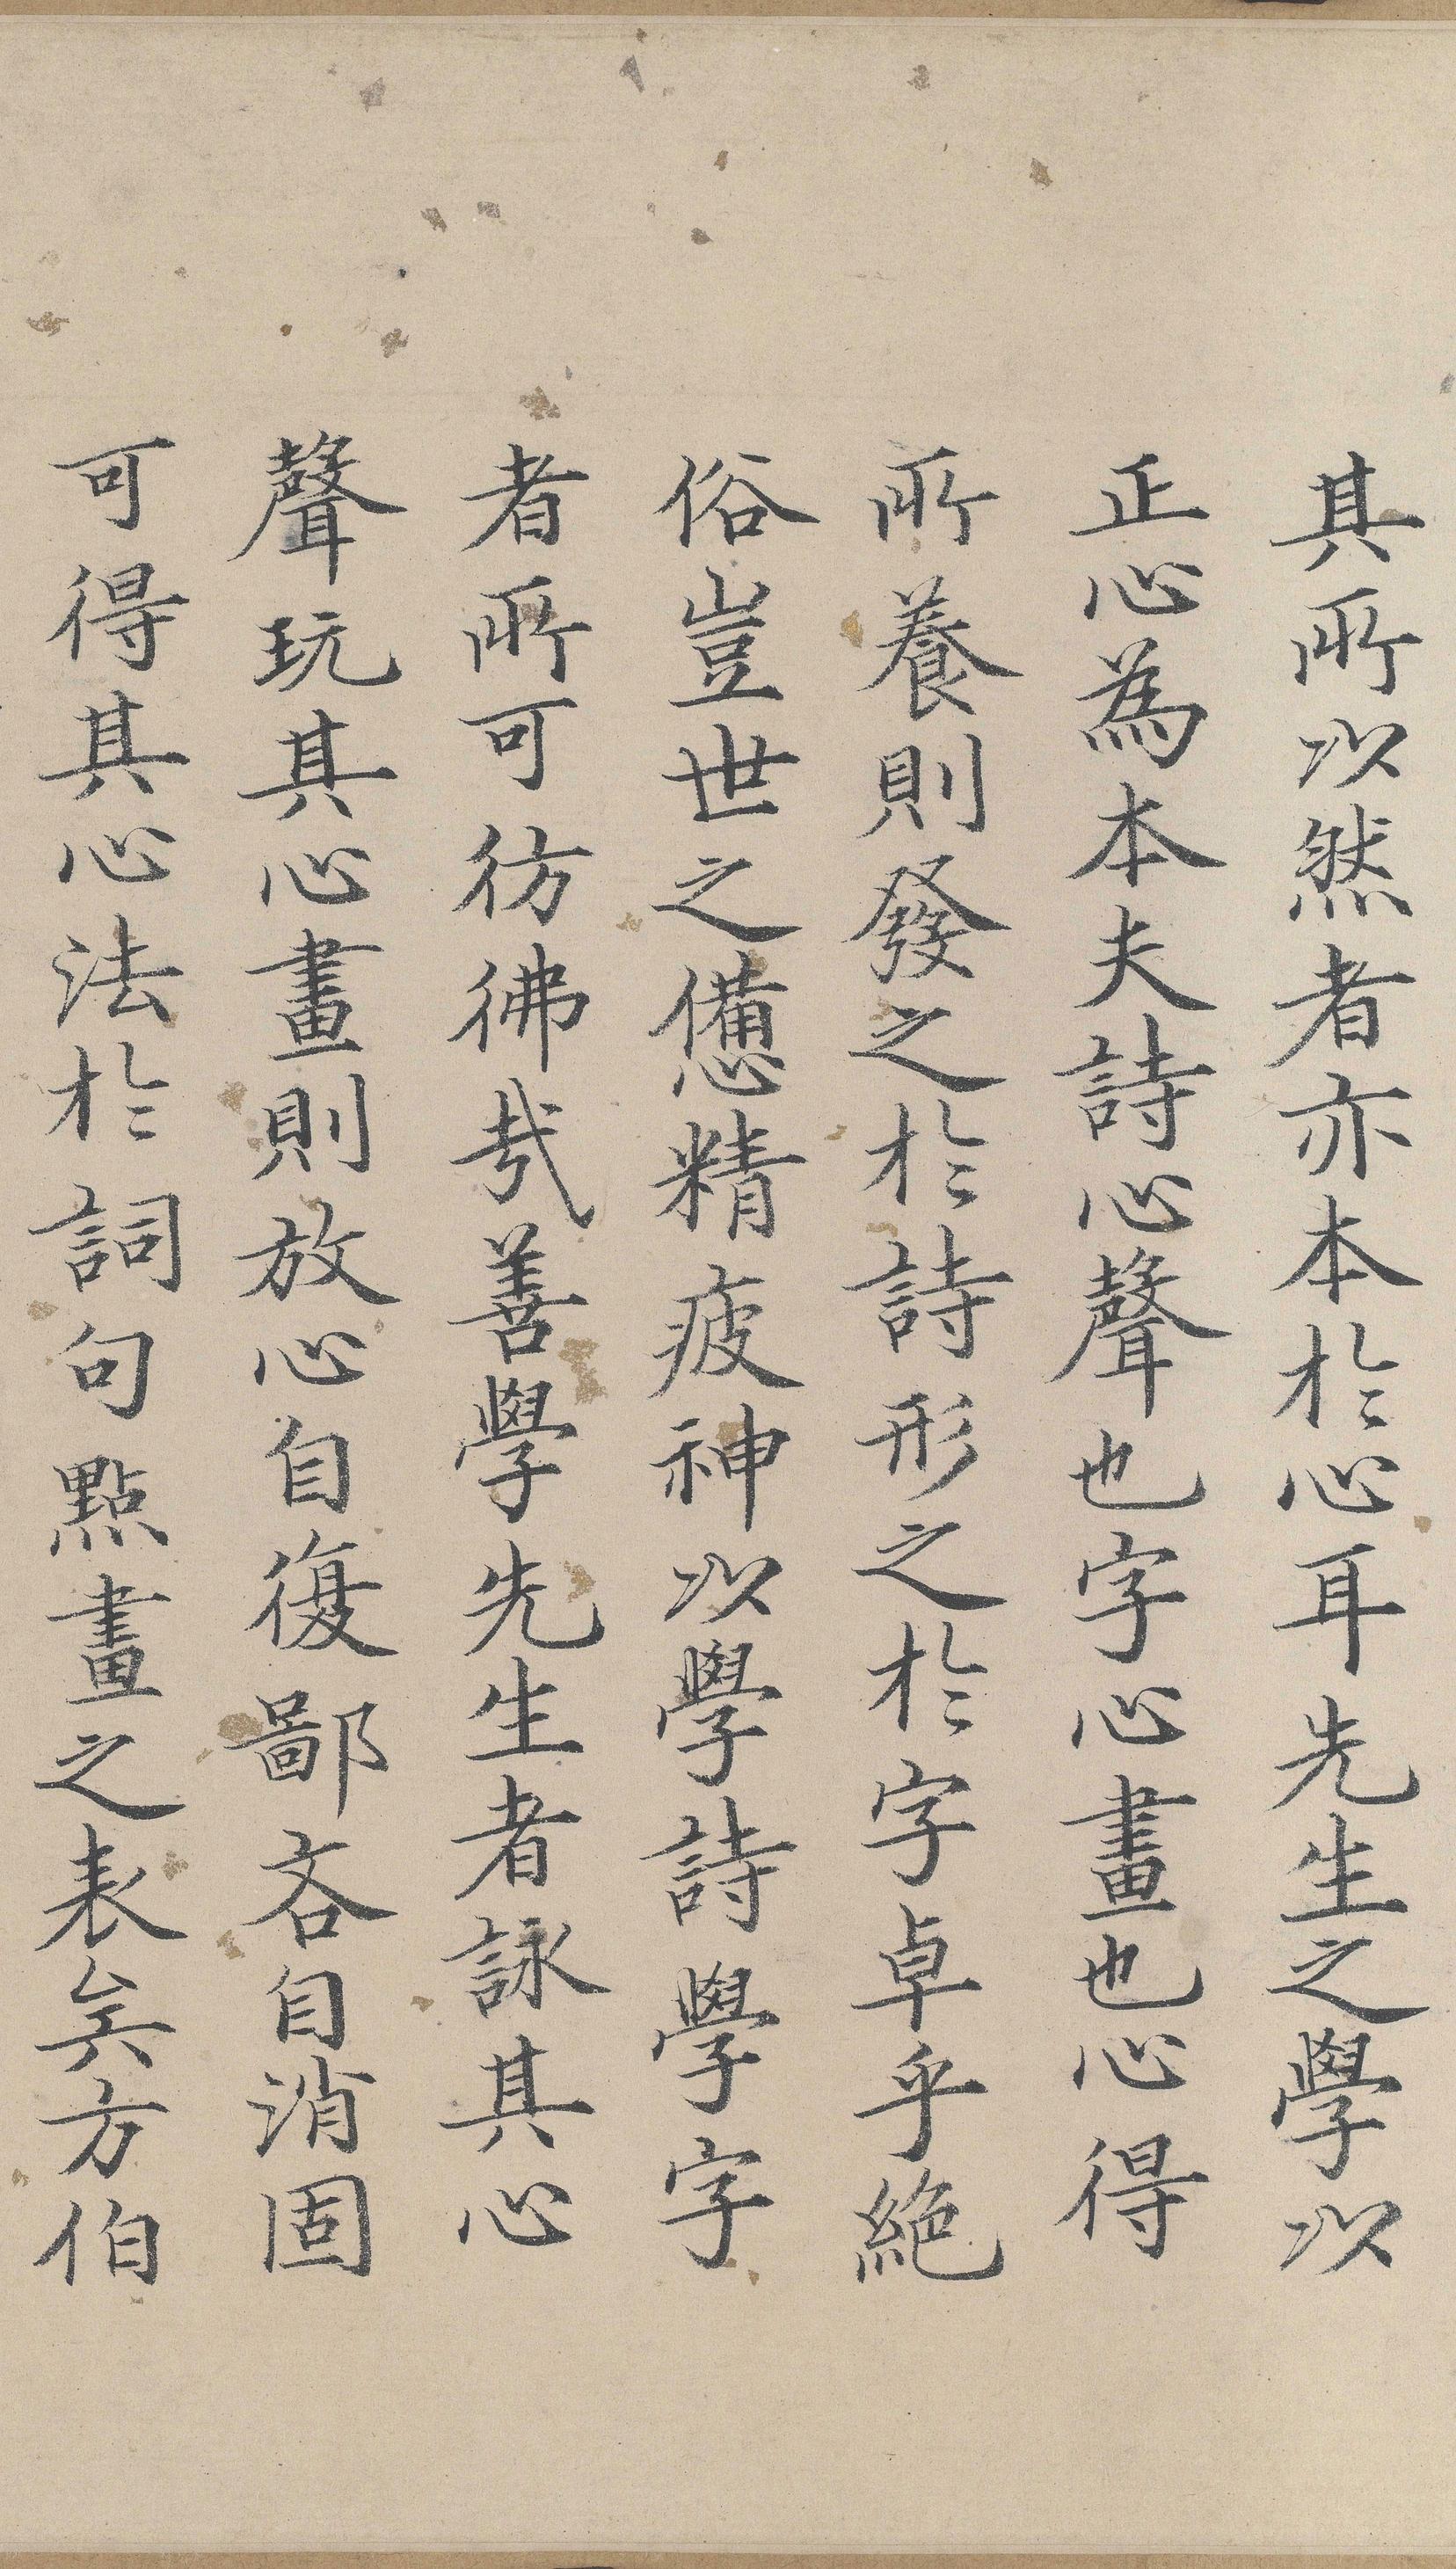 其所以然者亦本於心耳先生之學以
正心為本夫詩心聲也字心畫也心得
所養則發之於詩形之於字卓乎絕
俗豈世之憊精疲神以學詩學字
者所可彷彿哉善學先生者詠其心
聲玩其心畫則放心自復鄙吝自消固
可得其心法於詞句點畫之表矣方伯